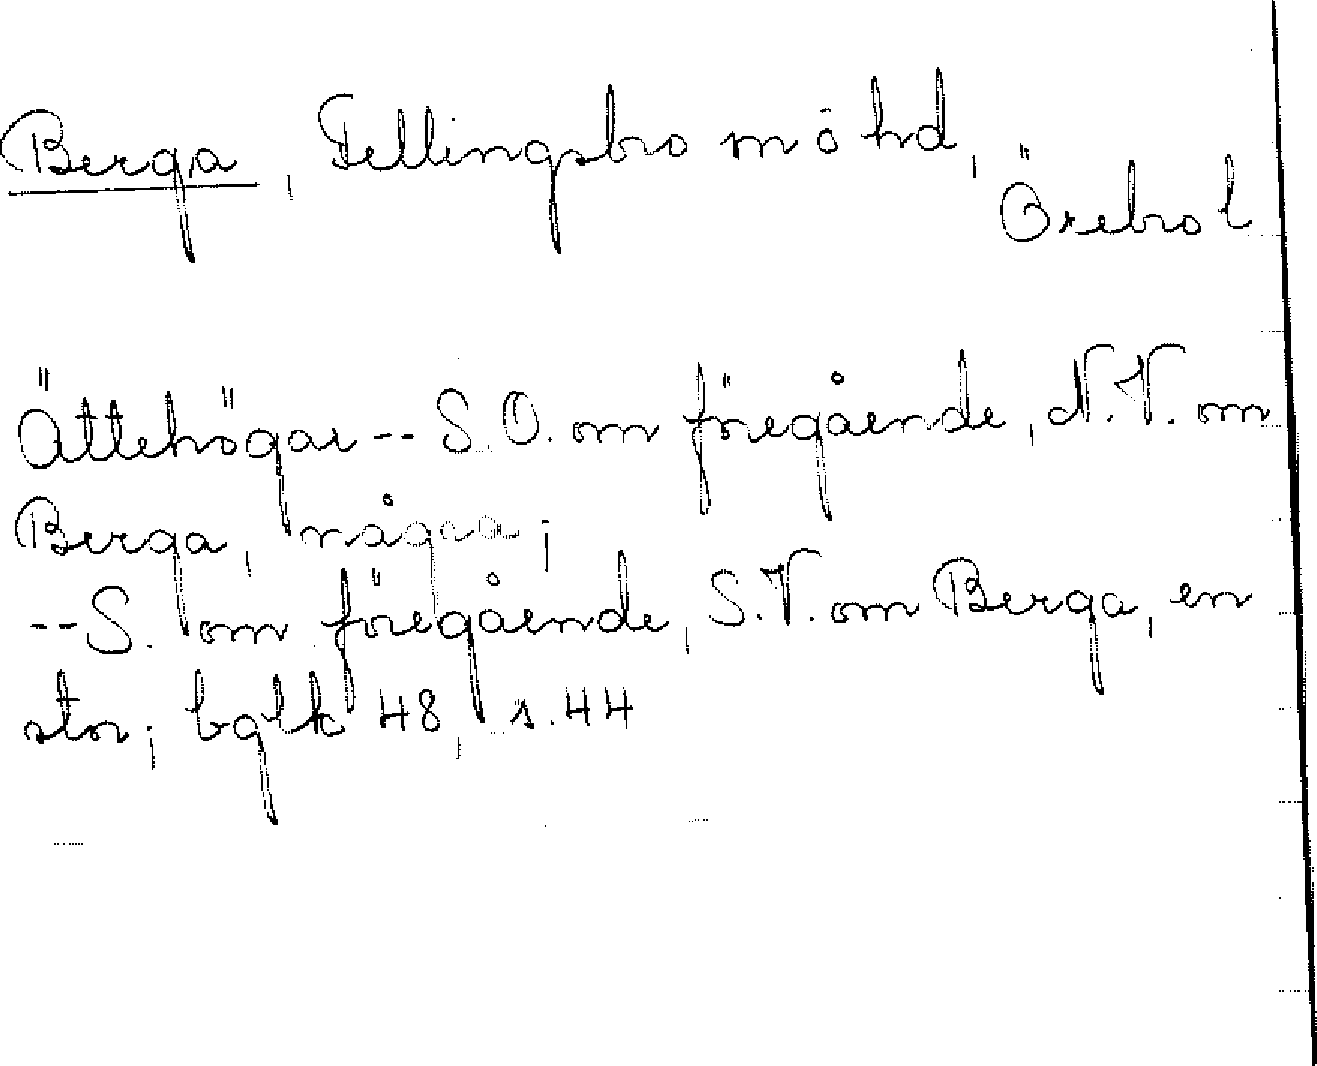 Berga, Fellingsbro sn ö hd,
Örebro l
Ättehögar -- S.O. om föregående, N.V. om
Berga, några;
-- S. om föregående, S.V. om Berga, en
stor; bglk 48, s. 44